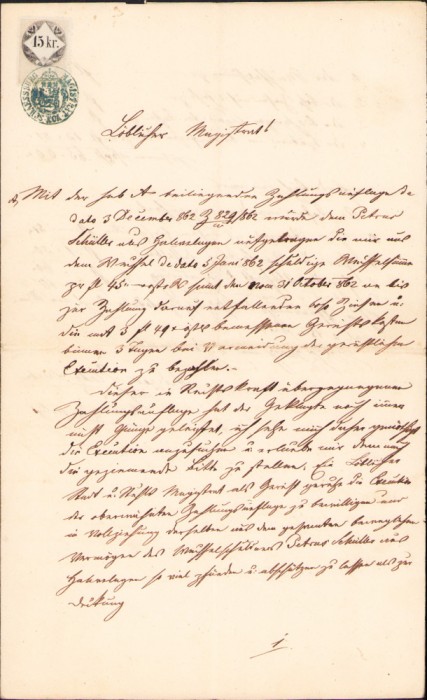 15 kr.
MAGISTRAT VON SCHAESSBURG
Löblicher Magistrat!
Mit der sub A beiliegenden Zahlungsauflage de
dato 3 December 862 Z 829/862 wurde dem Petrus
Schüller aus Halvelagen aufgetragen die mir aus
dem Wechsel de dato 5 Juni 862 schuldige Wechselsumme
pr fl 45 sammt den vom 31 October 862 an bis
zur Zahlung darauf entfallenden Zinsen u
die mit 3 fl 49 bemessenen Gerichtskosten
binnen 3 Tagen bei Vermeidung der gerichtlichen
Execution zu bezahlen.
Dieser in Rechtskraft übergegangenen
Zahlungsauflage hat der Geklagte noch immer
nicht Genüge geleistet, ich sehe mich daher genöthigt
die Execution anzusuchen u erlaube mir demnach
die geziemende Bitte zu stellen: Ein Löblicher
Stadt u Magistrat als Gericht geruhe die Execution
der oberwähnten Zahlungsauflage zu bewilligen und
in Vollziehung derselben aus dem gesammten beweglichen
Vermögen des Wechselschuldners Petrus Schüller aus
Halvelagen so viel pfänden u abschätzen zu lassen als zur
Deckung